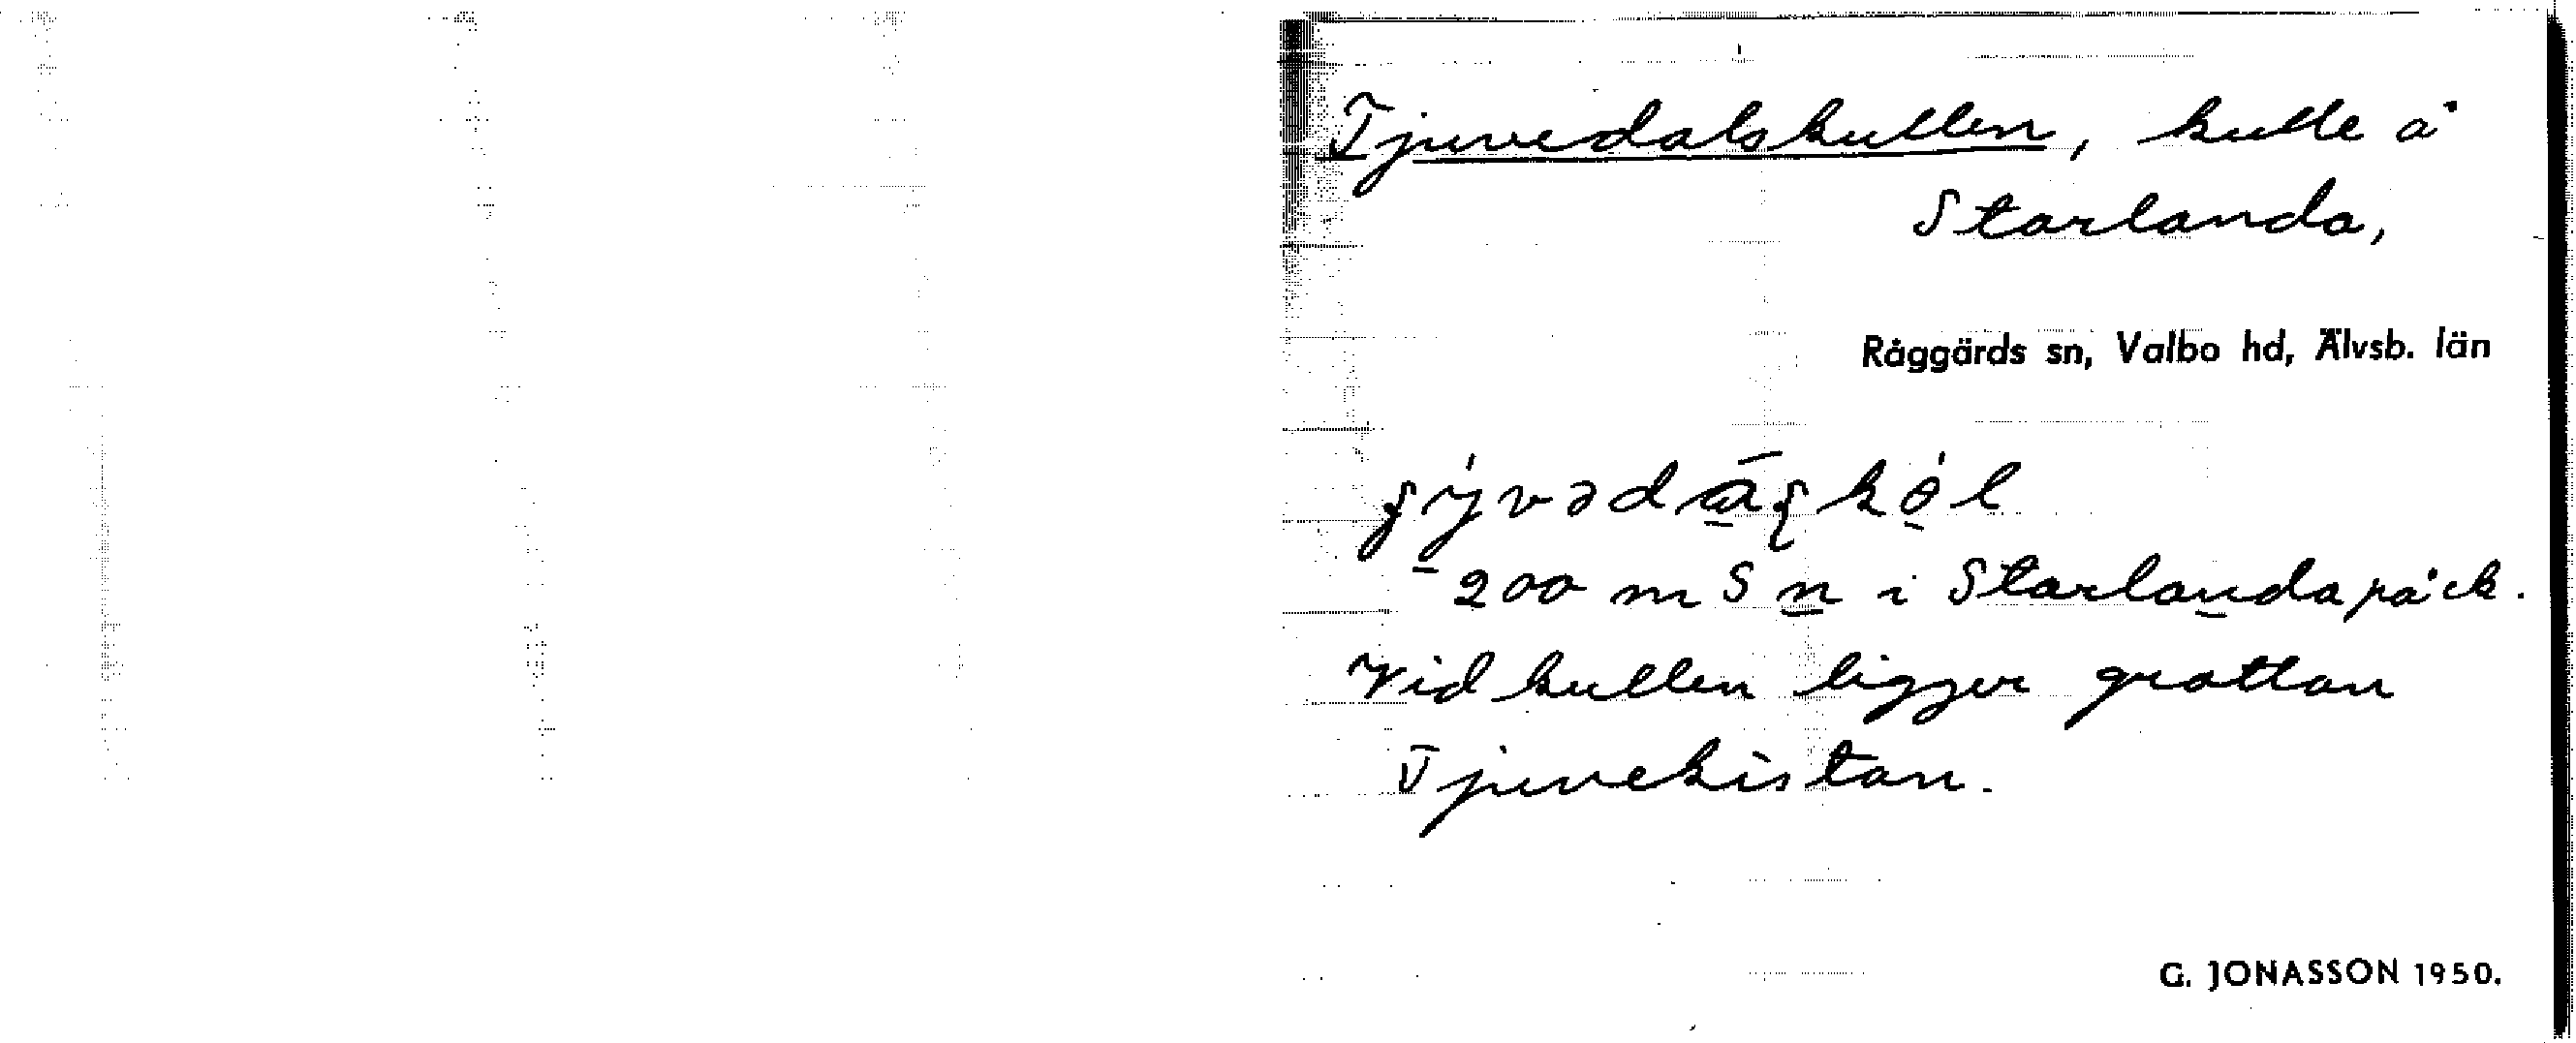 Tjuvedalskullen, kulle å
Starlanda,
Råggärds sn, Valbo hd, Älvsb. län
200 m S n i Starlanda på ek.
Vid kullen ligger grottan
Tjuvekistan.
G. JONASSON 1950.